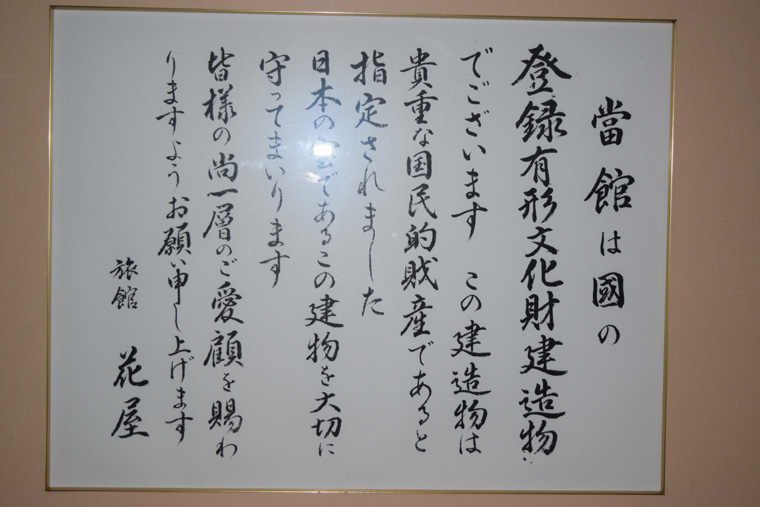 當館は國の
登録有形文化財建造物
でございます この建造物は
貴重な国民的財産であると
指定されました
日本の宝であるこの建物を大切に
守ってまいります
皆様の尚一層のご愛顧を賜わ
りますようお願い申し上げます
旅館 花屋